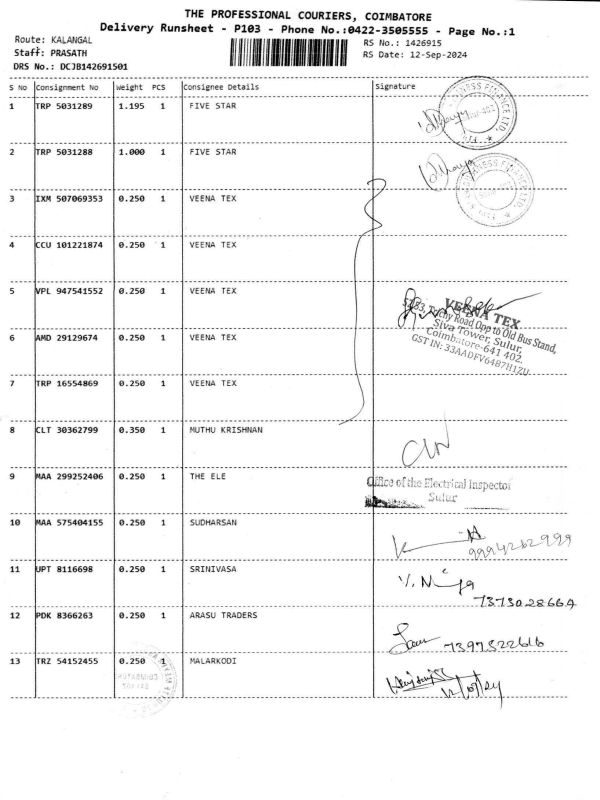 THE PROFESSIONAL COURIERS, COIMBATORE
Delivery Runsheet - P103 - Phone No.:0422-3505555 - Page No.:1
Route: KALANGAL
RS No.: 1426915
Staff: PRASATH
RS Date: 12-Sep-2024
DRS No.: DCJB142691501
S No Consignment No Weight PCS Consignee Details Signature
1 TRP 5031289 1.195 1 FIVE STAR
2 TRP 5031288 1.000 1 FIVE STAR
3 IXM 507069353 0.250 1 VEENA TEX
4 CCU 101221874 0.250 1 VEENA TEX
5 VPL 947541552 0.250 1 VEENA TEX
VEENA TEX
Road Opp to Old Bus Stand,
Siva Tower, Sulur,
Coimbatore-641 402.
GST IN: 33AADFV6487H1ZU
6 AMD 29129674 0.250 1 VEENA TEX
7 TRP 16554869 0.250 1 VEENA TEX
8 CLT 30362799 0.350 1 MUTHU KRISHNAN
9 MAA 299252406 0.250 1 THE ELE
Office of the Electrical Inspector
Sulur
10 MAA 575404155 0.250 1 SUDHARSAN
9994262999
11 UPT 8116698 0.250 1 SRINIVASA
7373028664
12 PDK 8366263 0.250 1 ARASU TRADERS
7397322616
13 TRZ 54152455 0.250 1 MALARKODI